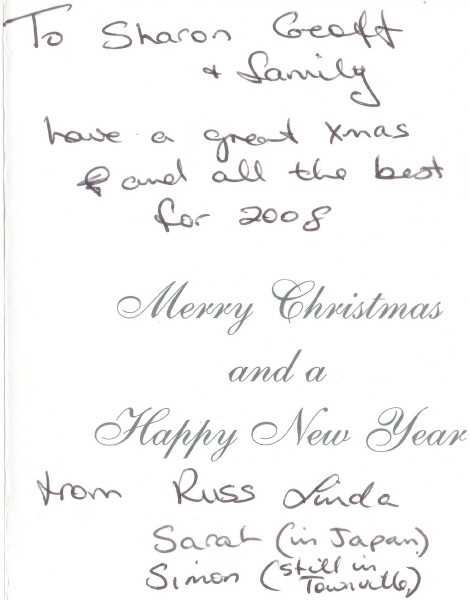 To Sharon Geoff
+ family
have a great Xmas
and all the best
for 2008
Merry Christmas
and a
Happy New Year
from Russ Linda
Sarah (in Japan)
Simon (still in
Townville)